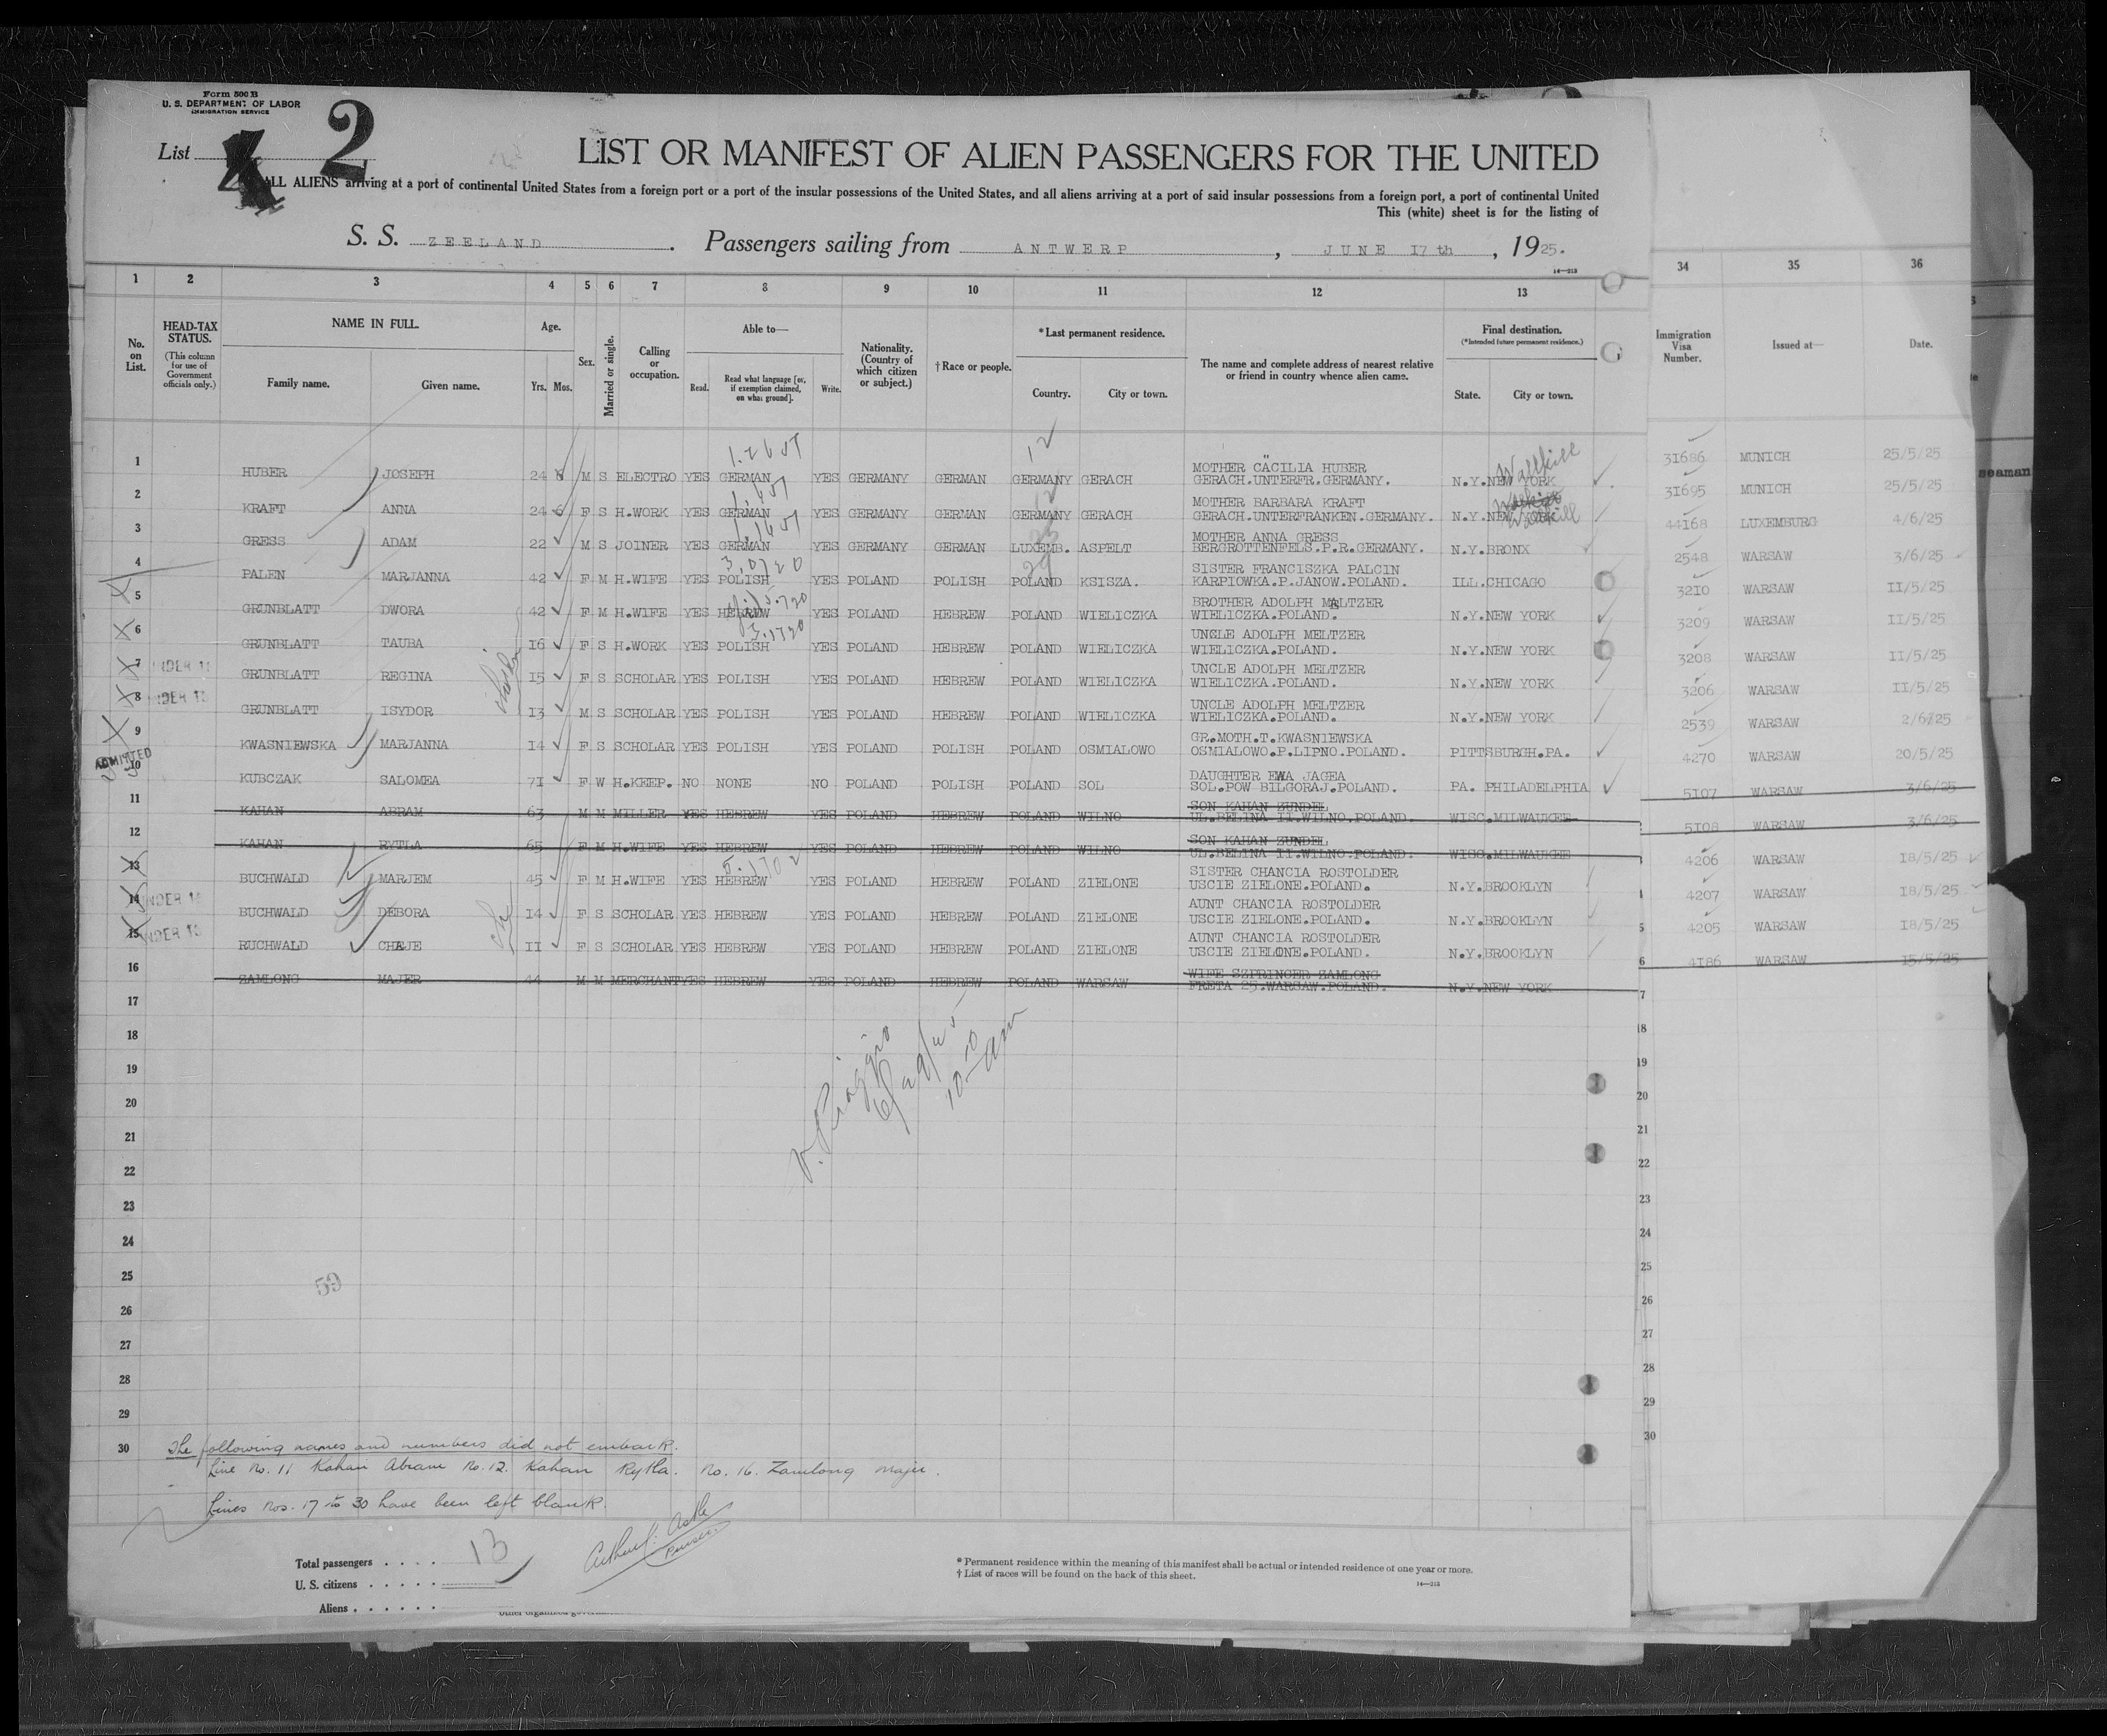 Form 500 B
U. S. DEPARTMENT OF LABOR
IMMIGRATION SERVICE
List 2
LIST OR MANIFEST OF ALIEN PASSENGERS FOR THE UNITED
ALL ALIENS arriving at a port of continental United States from a foreign port or a port of the insular possessions of the United States, and all aliens arriving at a port of said insular possessions from a foreign port, a port of continental United
This (white) sheet is for the listing of
S. S. ZEELAND. Passengers sailing from ANTWERP, JUNE I7 th, 1925.
14—213
1 2 3 4 5 6 7 8 9 10 11 12 13 34 35 36
No. on List.
HEAD-TAX STATUS.
(This column for use of Government officials only.)
NAME IN FULL.
Family name. Given name.
Age.
Yrs. Mos.
Sex.
Married or single.
Calling or occupation.
Able to—
Read. Read what language [or, if exemption claimed, on what ground]. Write.
Nationality. (Country of which citizen or subject.)
† Race or people.
* Last permanent residence.
Country. City or town.
The name and complete address of nearest relative or friend in country whence alien came.
Final destination.
(* Intended future permanent residence.)
State. City or town.
Immigration Visa Number.
Issued at—
Date.
seaman
1 HUBER JOSEPH 24 M S ELECTRO YES GERMAN YES GERMANY GERMAN GERMANY GERACH MOTHER CÄCILIA HUBER GERACH.UNTERFR.GERMANY. N.Y.NEW YORK Wallkill 3I686 MUNICH 25/5/25
2 KRAFT ANNA 24 6 F S H.WORK YES GERMAN YES GERMANY GERMAN GERMANY GERACH MOTHER BARBARA KRAFT GERACH.UNTERFRANKEN.GERMANY. N.Y.NEW YORK Wallkill 3I695 MUNICH 25/5/25
3 GRESS ADAM 22 M S JOINER YES GERMAN YES GERMANY GERMAN LUXEMB. ASPELT MOTHER ANNA GRESS BERGROTTENFELS.P.R.GERMANY. N.Y.BRONX 44I68 LUXEMBURG 4/6/25
4 PALEN MARJANNA 42 F M H.WIFE YES POLISH YES POLAND POLISH POLAND KSISZA. SISTER FRANCISZKA PALCIN KARPIOWKA.P.JANOW.POLAND. ILL.CHICAGO 2548 WARSAW 3/6/25
5 GRUNBLATT DWORA 42 F M H.WIFE YES HEBREW YES POLAND HEBREW POLAND WIELICZKA BROTHER ADOLPH MALTZER WIELICZKA.POLAND. N.Y.NEW YORK 32I0 WARSAW II/5/25
6 GRUNBLATT TAUBA I6 F S H.WORK YES POLISH YES POLAND HEBREW POLAND WIELICZKA UNCLE ADOLPH MELTZER WIELICZKA.POLAND. N.Y.NEW YORK 3209 WARSAW II/5/25
7 GRUNBLATT REGINA I5 F S SCHOLAR YES POLISH YES POLAND HEBREW POLAND WIELICZKA UNCLE ADOLPH MELTZER WIELICZKA.POLAND. N.Y.NEW YORK 3208 WARSAW II/5/25
8 GRUNBLATT ISYDOR I3 M S SCHOLAR YES POLISH YES POLAND HEBREW POLAND WIELICZKA UNCLE ADOLPH MELTZER WIELICZKA.POLAND. N.Y.NEW YORK 3206 WARSAW II/5/25
9 KWASNIEWSKA MARJANNA I4 F S SCHOLAR YES POLISH YES POLAND POLISH POLAND OSMIALOWO GR.MOTH.T.KWASNIEWSKA OSMIALOWO.P.LIPNO.POLAND. PITTSBURGH.PA. 2539 WARSAW 2/6/25
ADMITTED
10 KUBCZAK SALOMEA 7I F W H.KEEP. NO NONE NO POLAND POLISH POLAND SOL DAUGHTER EWA JAGEA SOL.POW BILGORAJ.POLAND. PA. PHILADELPHIA 4270 WARSAW 20/5/25
11 KAHAN ABRAM 63 M M MILLER YES HEBREW YES POLAND HEBREW POLAND WILNO SON KAHAN ZUNDEL UL.BELINA II.WILNO.POLAND. WISC.MILWAUKEE 5I07 WARSAW 3/6/25
12 KAHAN RYTLA 65 F M H.WIFE YES HEBREW YES POLAND HEBREW POLAND WILNO SON KAHAN ZUNDEL UL.BELINA II.WILNO.POLAND. WISC.MILWAUKEE 5I08 WARSAW 3/6/25
13 BUCHWALD MARJEM 45 F M H.WIFE YES HEBREW YES POLAND HEBREW POLAND ZIELONE SISTER CHANCIA ROSTOLDER USCIE ZIELONE.POLAND. N.Y.BROOKLYN 4206 WARSAW I8/5/25
14 BUCHWALD DEBORA I4 F S SCHOLAR YES HEBREW YES POLAND HEBREW POLAND ZIELONE AUNT CHANCIA ROSTOLDER USCIE ZIELONE.POLAND. N.Y.BROOKLYN 4207 WARSAW I8/5/25
15 RUCHWALD CHAJE II F S SCHOLAR YES HEBREW YES POLAND HEBREW POLAND ZIELONE AUNT CHANCIA ROSTOLDER USCIE ZIELONE.POLAND. N.Y.BROOKLYN 4205 WARSAW I8/5/25
16 ZAMLONG MAJER 44 M M MERCHANT YES HEBREW YES POLAND HEBREW POLAND WARSAW WIFE SZPRINGER ZAMLONG FRETA 25.WARSAW.POLAND. N.Y.NEW YORK 4I86 WARSAW I5/5/25
17
18
19
20
21
22
23
24
25
26
27
28
29
30
10 10 am
59
The following names and numbers did not embark.
Line No. 11 Kahan Abram No. 12. Kahan Rytla. No. 16. Zamlong Majer.
Lines Nos. 17 to 30 have been left blank.
Purser
Total passengers . . . . 13
U. S. citizens . . . . .
Aliens . . . . . .
* Permanent residence within the meaning of this manifest shall be actual or intended residence of one year or more.
† List of races will be found on the back of this sheet.
14—213